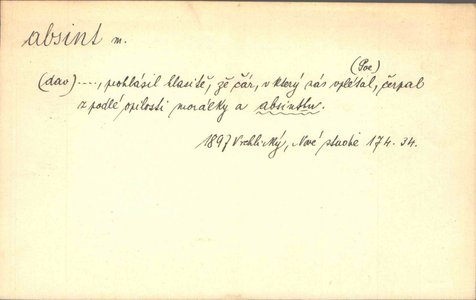 absint m.
(Poe)
(dav) ...., prohlásil hlasitě, že čár, v který nás vplétal, čerpal
z podlé opilosti morálky a absinthu.
1897 Vrchlický, Nové studie 174. 34.